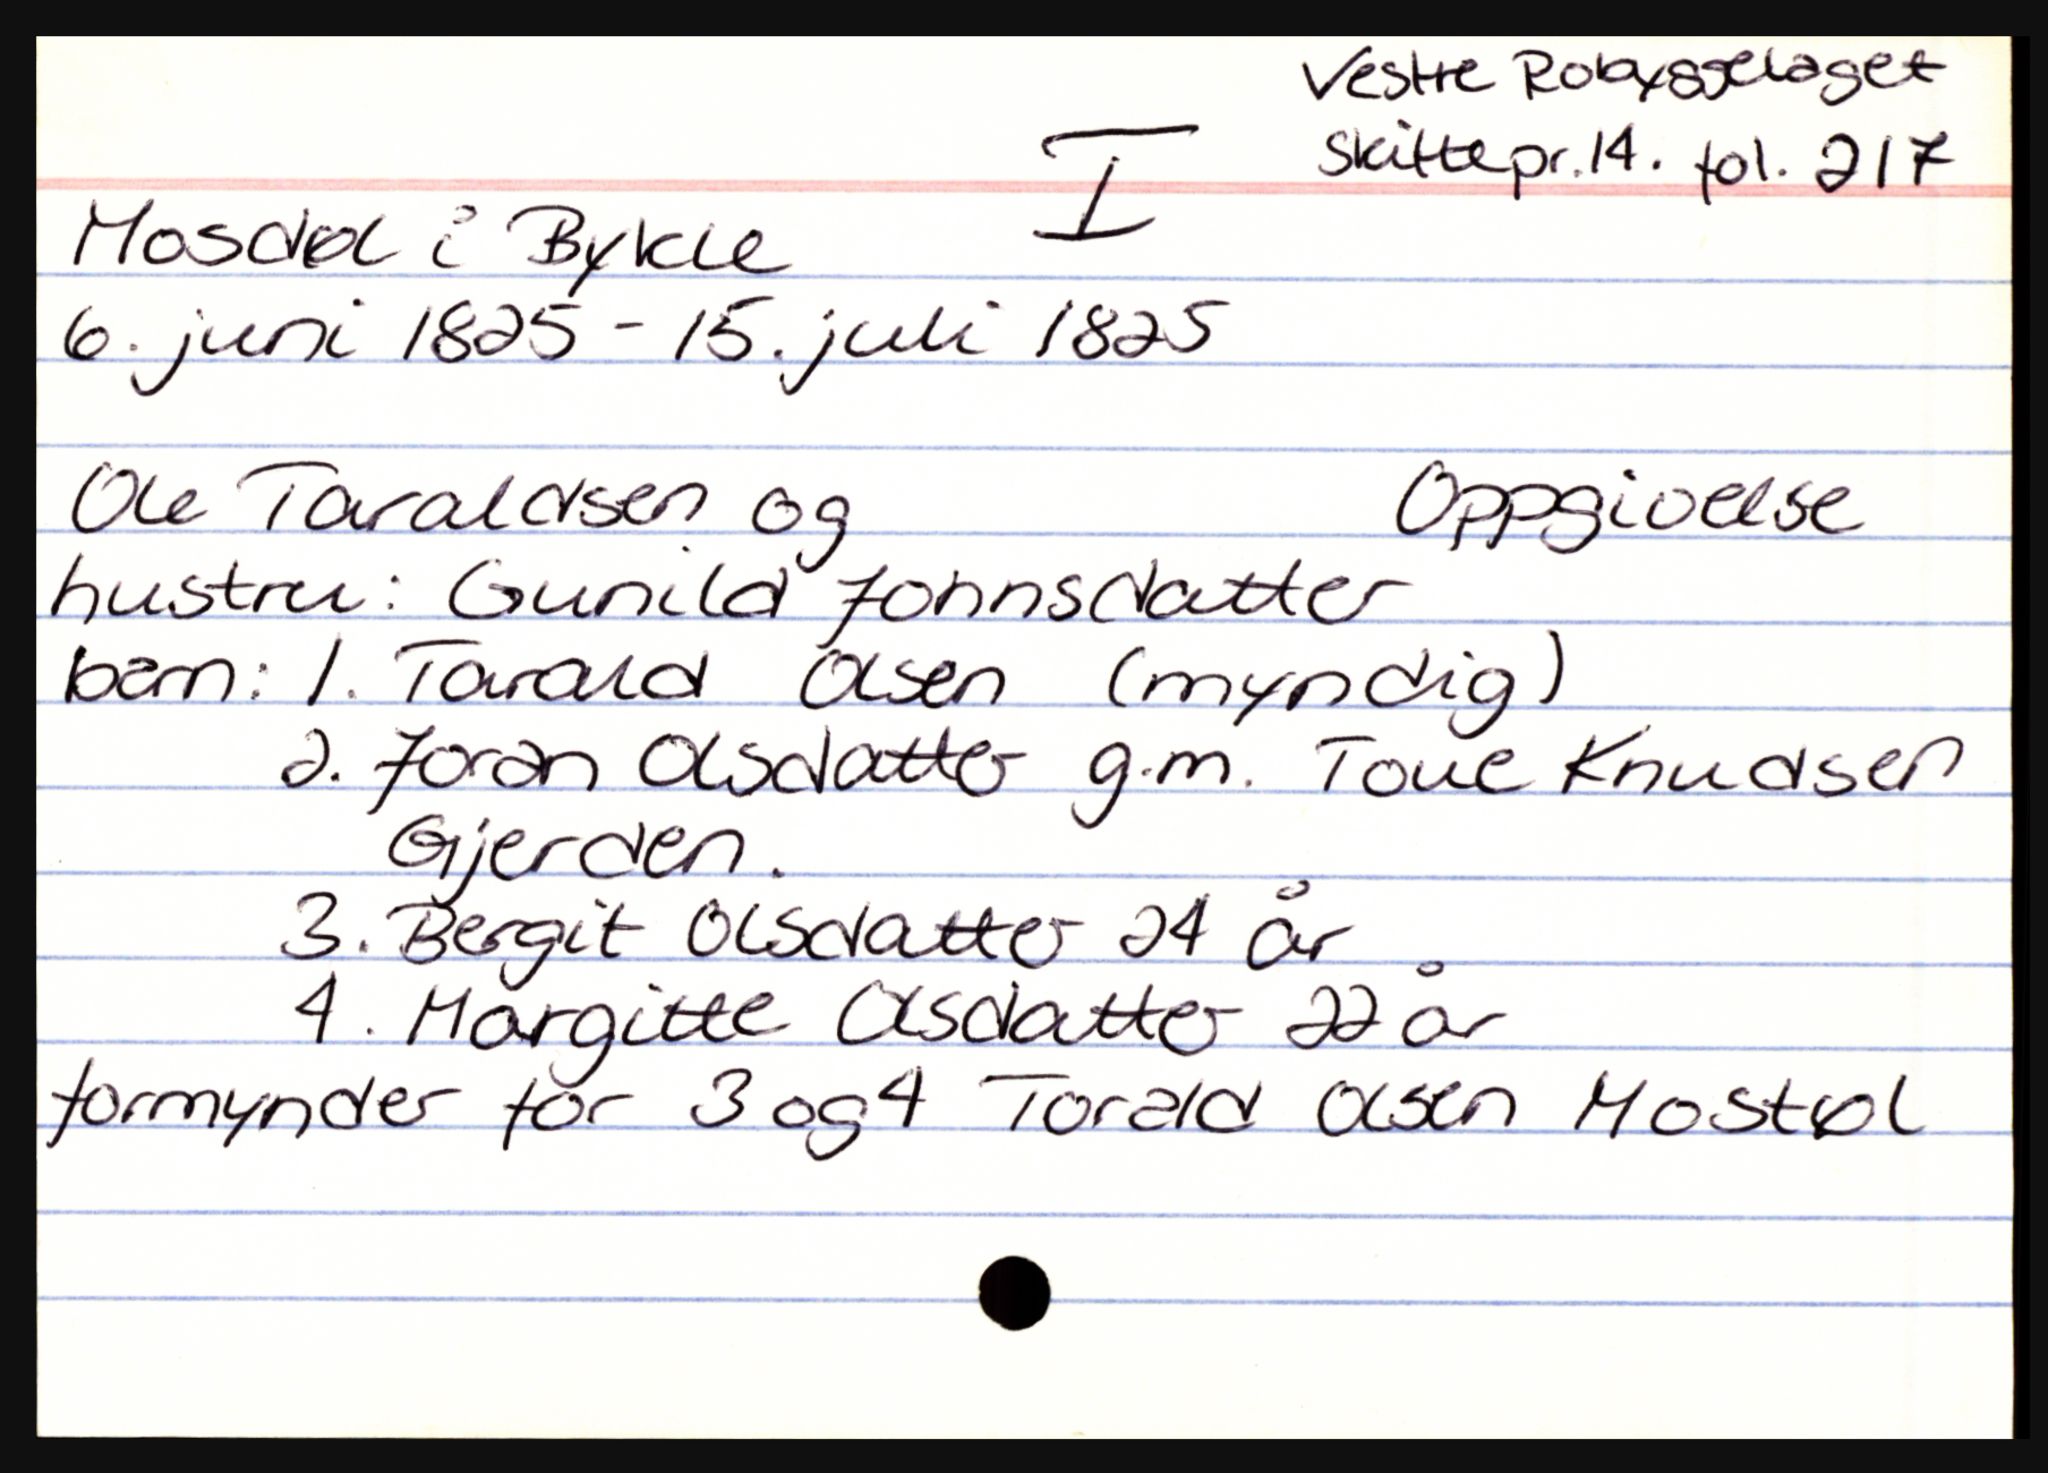 Vestre Robyggelaget
Skiftepr. 14. fol. 217
I
Mosdøl i Bykle
6. juni 1825 - 15. juli 1825
Ole Taraldsen og Oppgivelse
hustru: Gunild Johnsdatter
barn: 1. Tarald Olsen (myndig)
2. Joran Olsdatter g.m. Toue Knudsen
Gjerden.
3. Bergit Olsdatter 24 år
4. Margitte Olsdatter 22 år
formynder for 3 og 4 Torald Olsen Mostøl